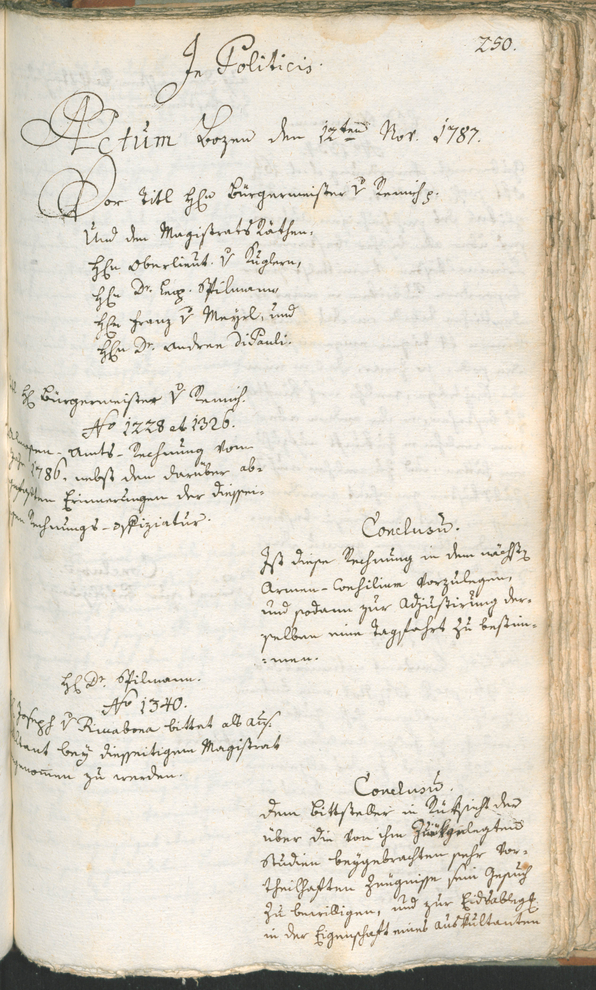 In Politicis.
250.
Actum Bozen den 12ten Nov. 1787.
Vor Titl HEn Bürgermeister v Remich p.
Und den Magistrats Räthen,
HEn Oberlieut. v Kuglern,
HEn Dr. Leop. Spilmann,
HEn Franz v Mayrl, und
HEn Dr. Andree Di Pauli.
HE Bürgermeister v Remich.
No 1228 et 1326.
Amts-Rechnung vom
1786. nebst den darüber ab-
Erinnerungen der diessei-
Rechnungs-Offiziatur.
Conclusum.
Ist diese Rechnung in dem nächsten
Armen-Consilium vorzulegen,
und sodann zur Adjustirung der-
selben eine Tagsfahrt zu bestim-
:men.
HE Dr. Spilmann.
No 1340.
Joseph v Rivabona bittet als Aus-
kultant bey diesseitigem Magistrat
genommen zu werden.
Conclusum.
dem Bittsteller in Rüksicht der
über die von ihm Zurükgelegten
Studien beygebrachten sehr vor-
theilhaften Zeugnisse sein Gesuch
zu bewilligen, und zur Eidsableg
in der Eigenschaft eines Auskultanten